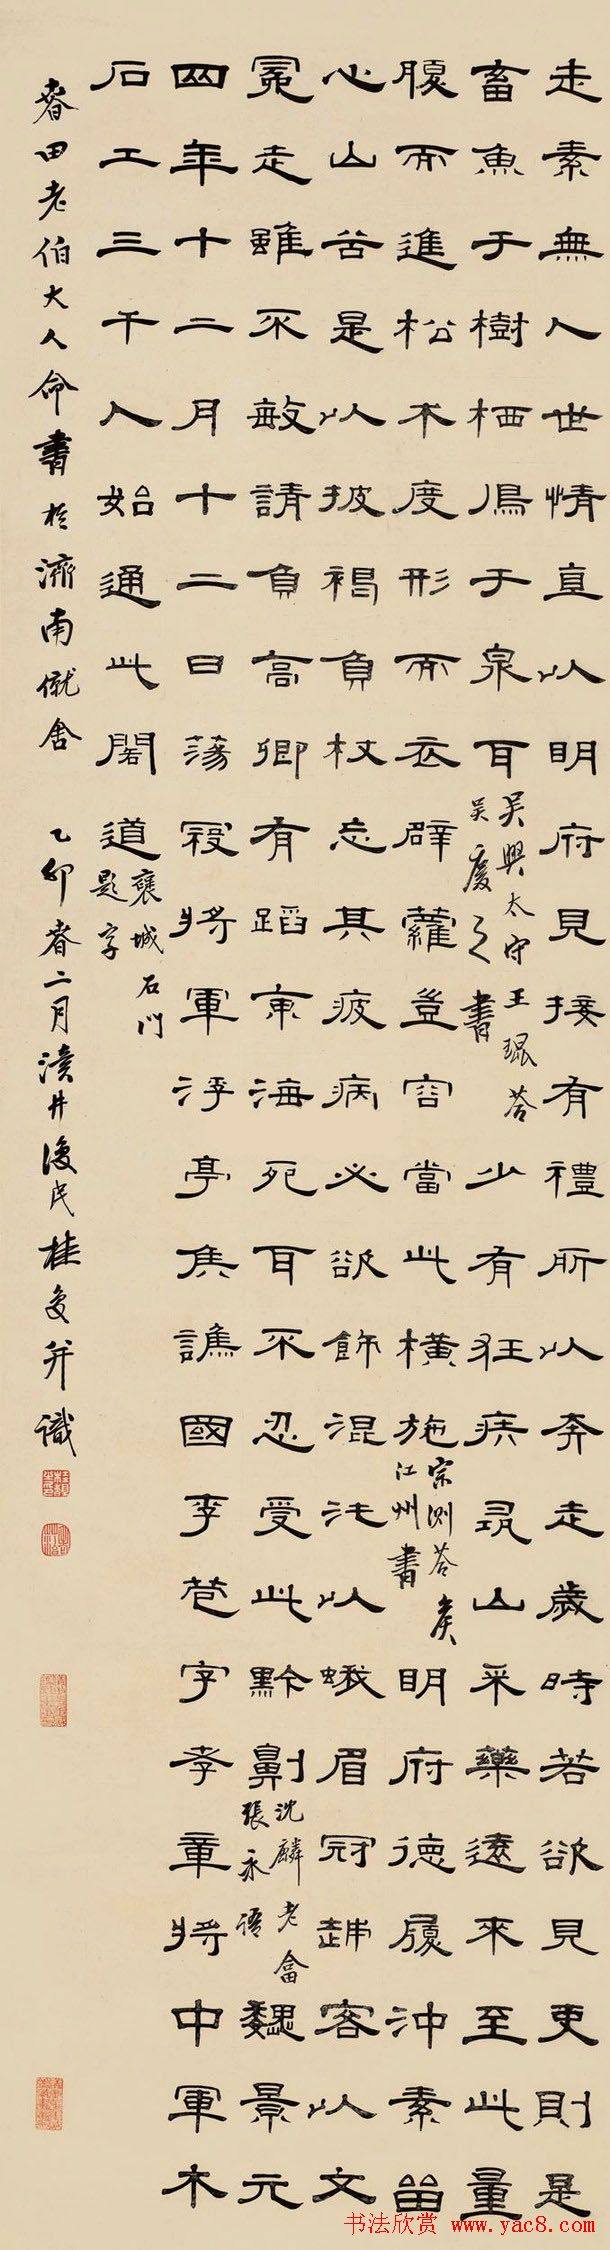 走素無人世情直以明府見接有禮所以奔走歲時若欲見吏則是
畜魚于樹栖鳥于泉耳 吴興太守王琨荅吴慶之書 少有狂疾尋山采藥遠來至此量
腹而進松术度形而衣薜蘿豈容當此橫施 宗测荅江州書 明府德履沖素留
心山谷是以披褐負杖忘其疲病必欲飾混沌以蛾眉冠越客以文
冕走雖不敏請負高卿有蹈東海死耳不忍受此黔劓 沈麟畣張永語 魏景元
四年十二月十二日蕩寇將軍浮亭矦譙國李苞字孝章將中軍木
石工三千人始通此閣道 褒城石門題字
春田老伯大人命書於濟南僦舍 乙卯春二月瀆井復民桂馥并識
书法欣赏 www.yac8.com